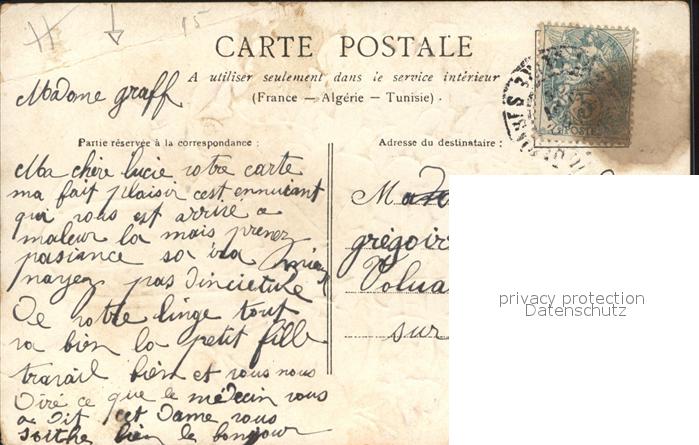 CARTE POSTALE
A utiliser seulement dans le service intérieur
(France — Algérie — Tunisie).
Madame graff
Partie réservée à la correspondance :
Adresse du destinataire :
Ma chère lucie votre carte
ma fait plaisir cest ennuiant
qui vous est arrivé a
maleur la mais prenez
pasiance sa ira mieux
nayez pas dincietude
De votre linge tout
va bien la petit fille
travail bien et vous nous
Diré ce que le médecin vous
a Dit cet Dame vous
soithe bien le bonjour
M
grégoir
Volua
sur
POSTE
privacy protection
Datenschutz